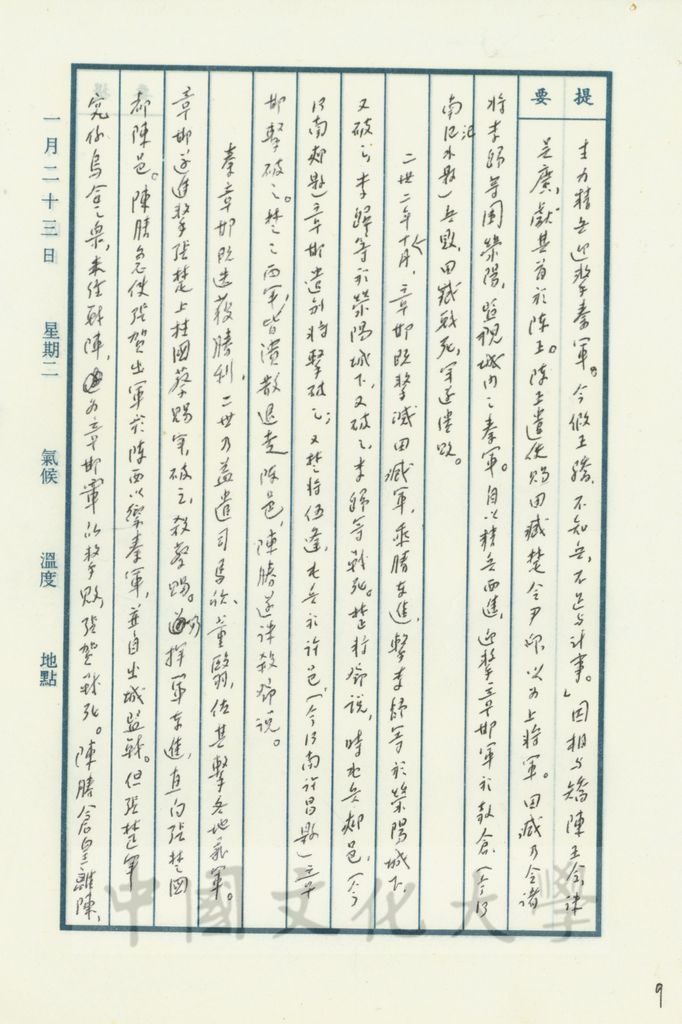 提要
主力精兵迎擊秦軍。今假王驕,不知兵,不足与計事。」因相与矯陳王令,誅
吴廣,獻其首於陳王。陳王遣使賜田臧楚令尹印,以为上將軍。田臧乃令諸
將李歸等圍滎陽,監視城內之秦軍。自以精兵西進,迎擊章邯軍於敖倉(今河
南汜水縣)兵敗,田臧戰死,軍遂潰敗。
二世二年十月,章邯既擊滅田臧軍,乘勝東進,擊李歸等於滎陽城下
又破之,李歸等於滎陽城下,又破之,李歸等戰死。楚將鄧說,時屯兵郯邑,(今
河南郟縣)章邯遣別將擊破之;又楚將伍逢,屯兵於許邑,(今河南許昌縣)章
邯擊破之。楚之两軍,皆潰散退走陳邑,陳勝遂誅殺鄧說。
秦章邯既迭獲勝利,二世乃益遣司馬欣、董翳,佐其擊各地義軍。
章邯遂進擊張楚上柱國蔡賜军,破之,殺蔡賜。乃揮軍東進,直向張楚國
都陳邑。陳勝急使張賀出軍於陳西以禦秦軍,並自出城監戰。但張楚軍
究係烏合之眾,未經戰陣,为章邯軍所擊敗,張賀戰死。陳勝倉皇離陳,
一月二十三日 星期二 氣候 溫度 地點
中國文化大學
9